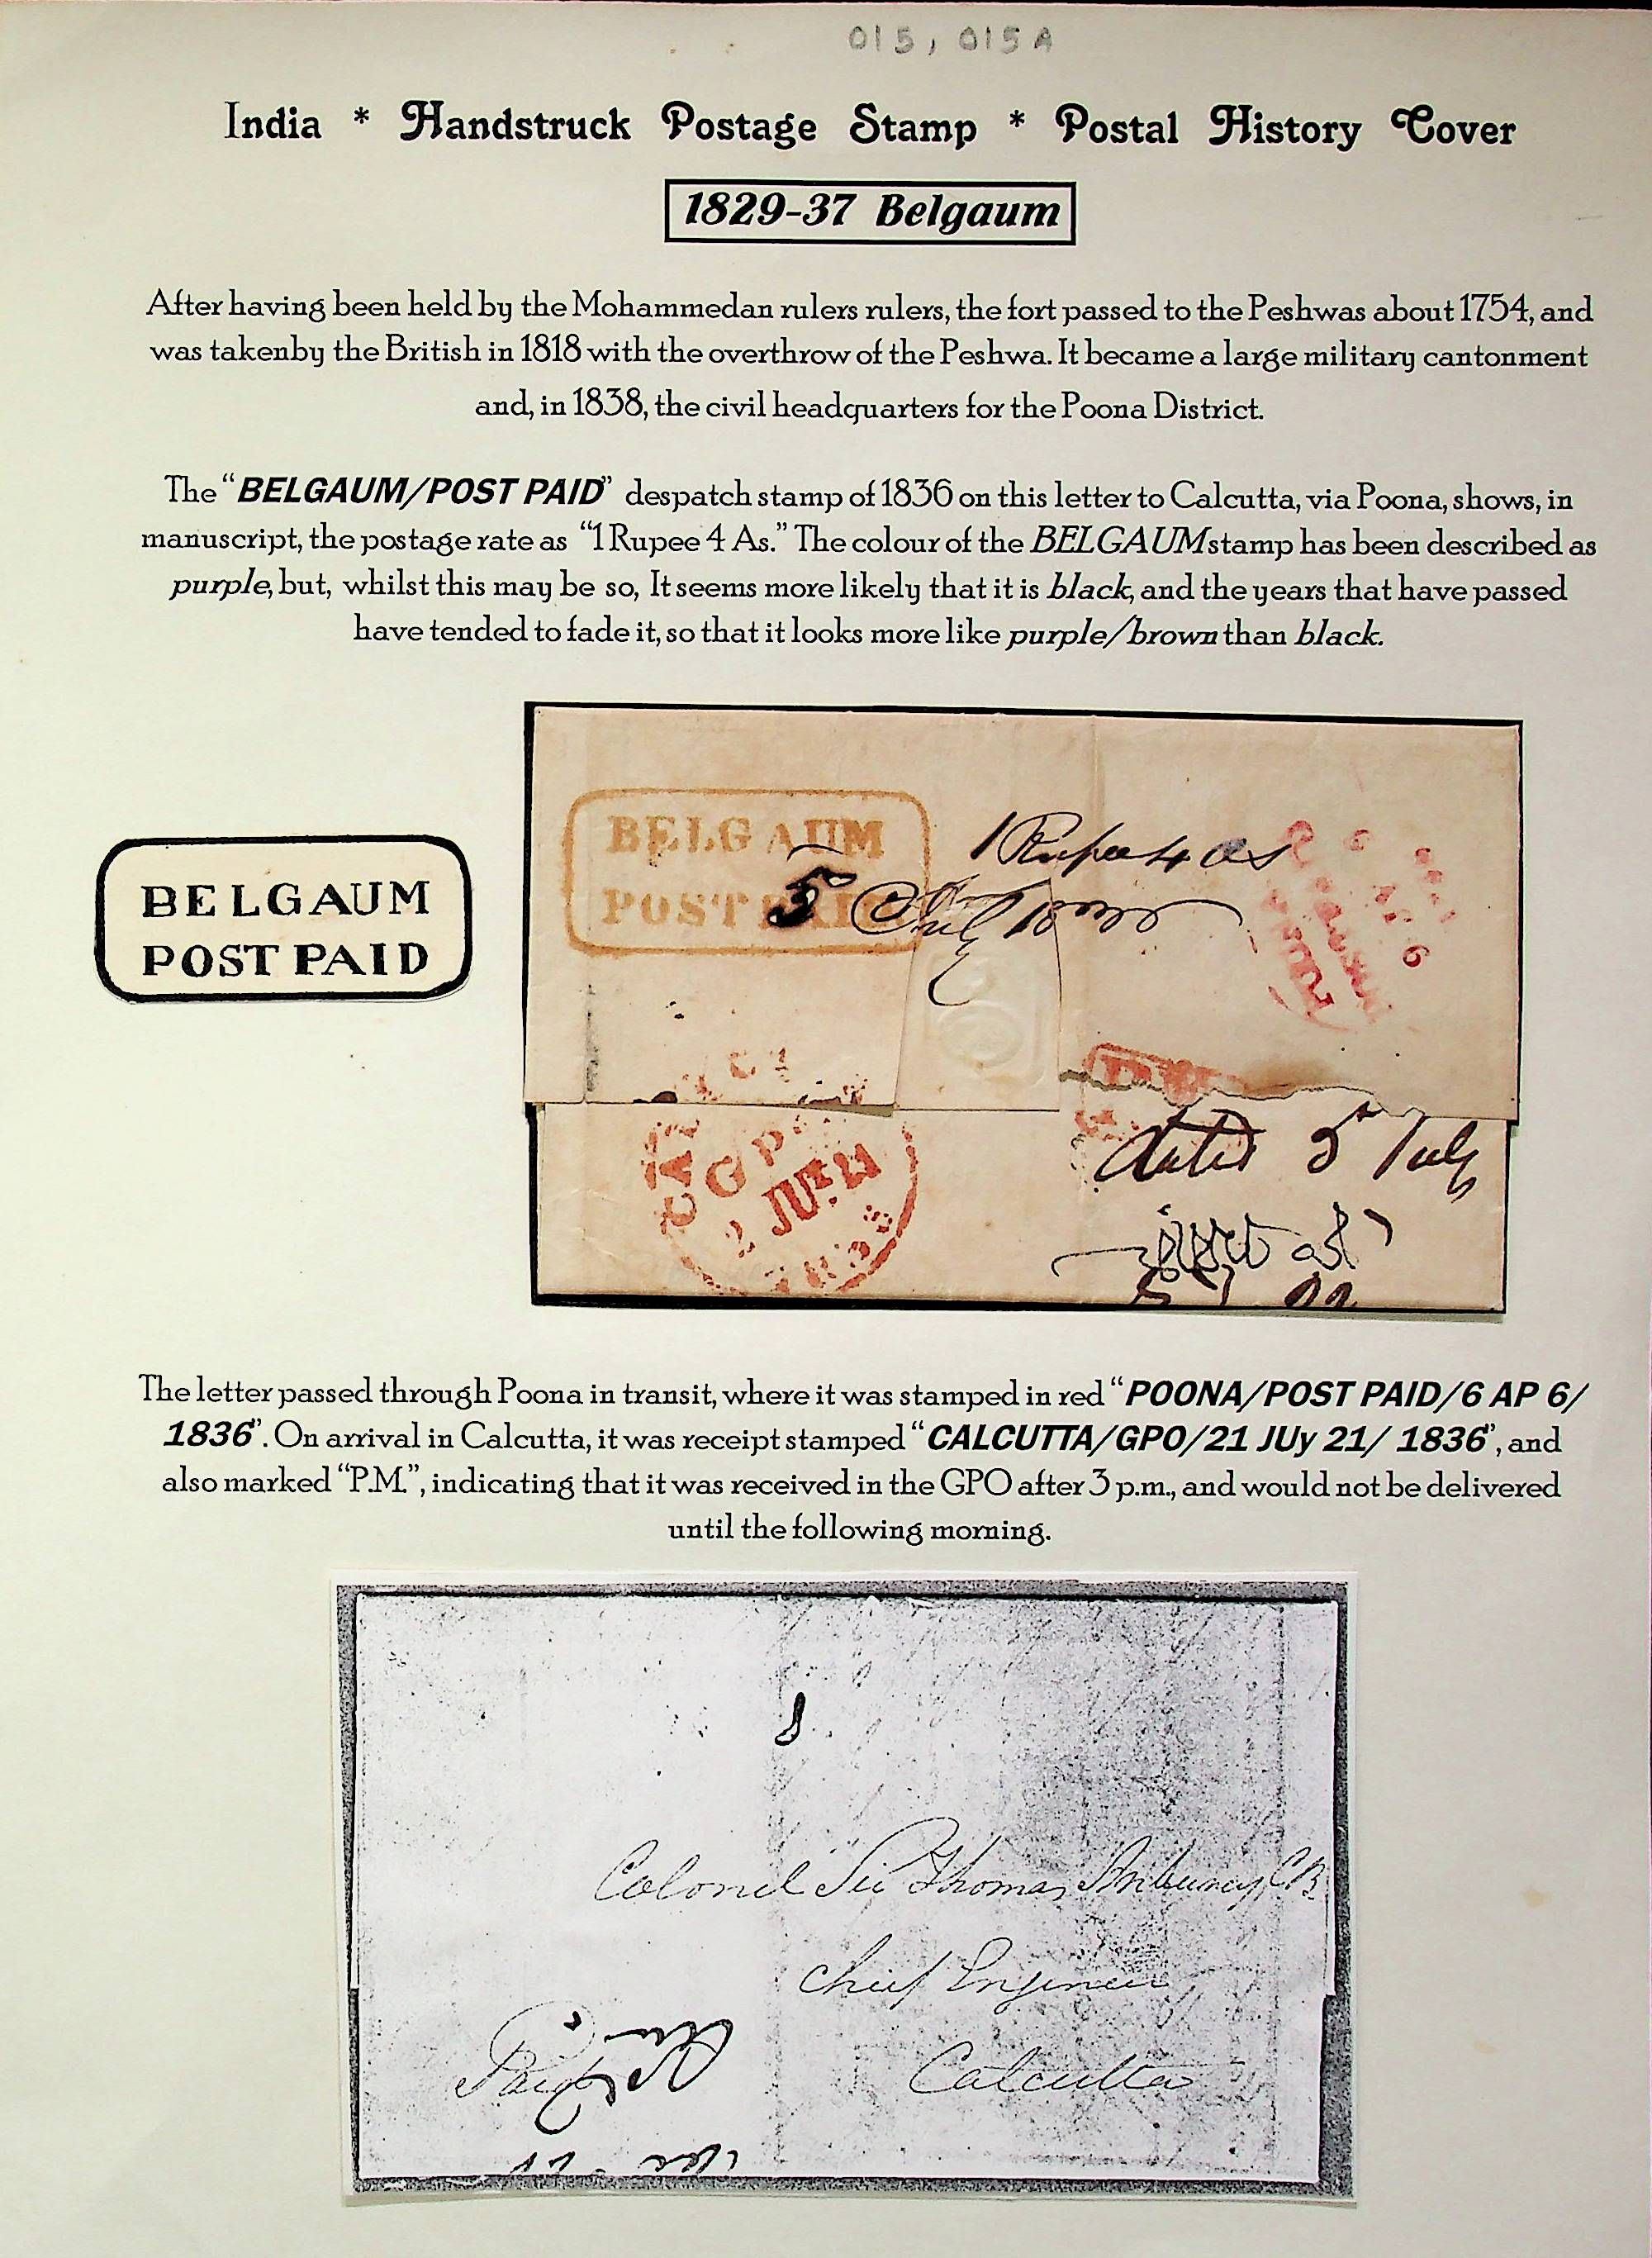 015, 015A
India * Handstruck Postage Stamp * Postal History Cover
1829-37 Belgaum
After having been held by the Mohammedan rulers rulers, the fort passed to the Peshwas about 1754, and
was takenby the British in 1818 with the overthrow of the Peshwa. It became a large military cantonment
and, in 1838, the civil headquarters for the Poona District.
The “BELGAUM/POST PAID” despatch stamp of 1836 on this letter to Calcutta, via Poona, shows, in
manuscript, the postage rate as “1 Rupee 4 As.” The colour of the BELGAUM stamp has been described as
purple, but, whilst this may be so, It seems more likely that it is black, and the years that have passed
have tended to fade it, so that it looks more like purple/brown than black.
BELGAUM
POST PAID
BELGAUM
POST PAID
1 Rupee 4 As
5
July
G P
JUY 21
dated 5 July
The letter passed through Poona in transit, where it was stamped in red “POONA/POST PAID/6 AP 6/
1836”. On arrival in Calcutta, it was receipt stamped “CALCUTTA/GPO/21 JUy 21/ 1836”, and
also marked “P.M.”, indicating that it was received in the GPO after 3 p.m., and would not be delivered
until the following morning.
Colonel Sir Thomas CB
Chief Engineer
Paid
Calcutta